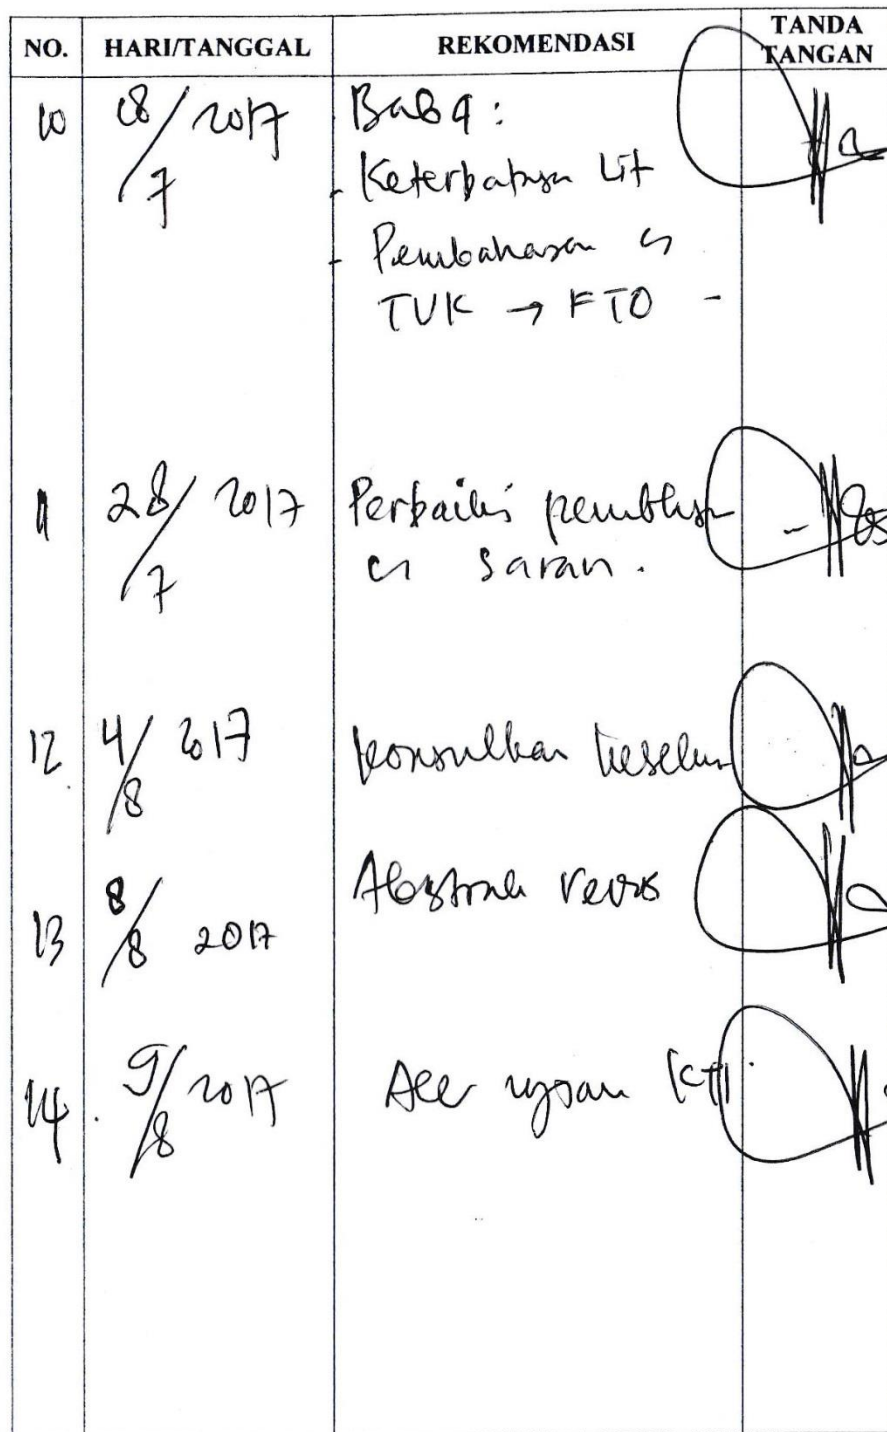 NO. HARI/TANGGAL REKOMENDASI TANDA TANGAN
10 18/7 2017 Bab 4:
- Keterbatasan Lit
- Pembahasan
TUK → FTO -
11 28/7 2017 Perbaiki
saran.
12 4/8 2017 Konsulkan
13 8/8 2017 Abstrak revisi
14. 9/8 2017 Acc KTI